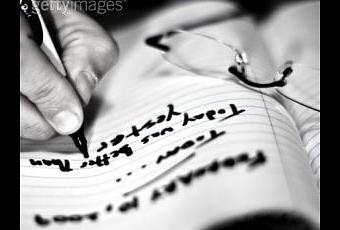 gettyimages®
February 10, 2009
Today was Better Than
yester